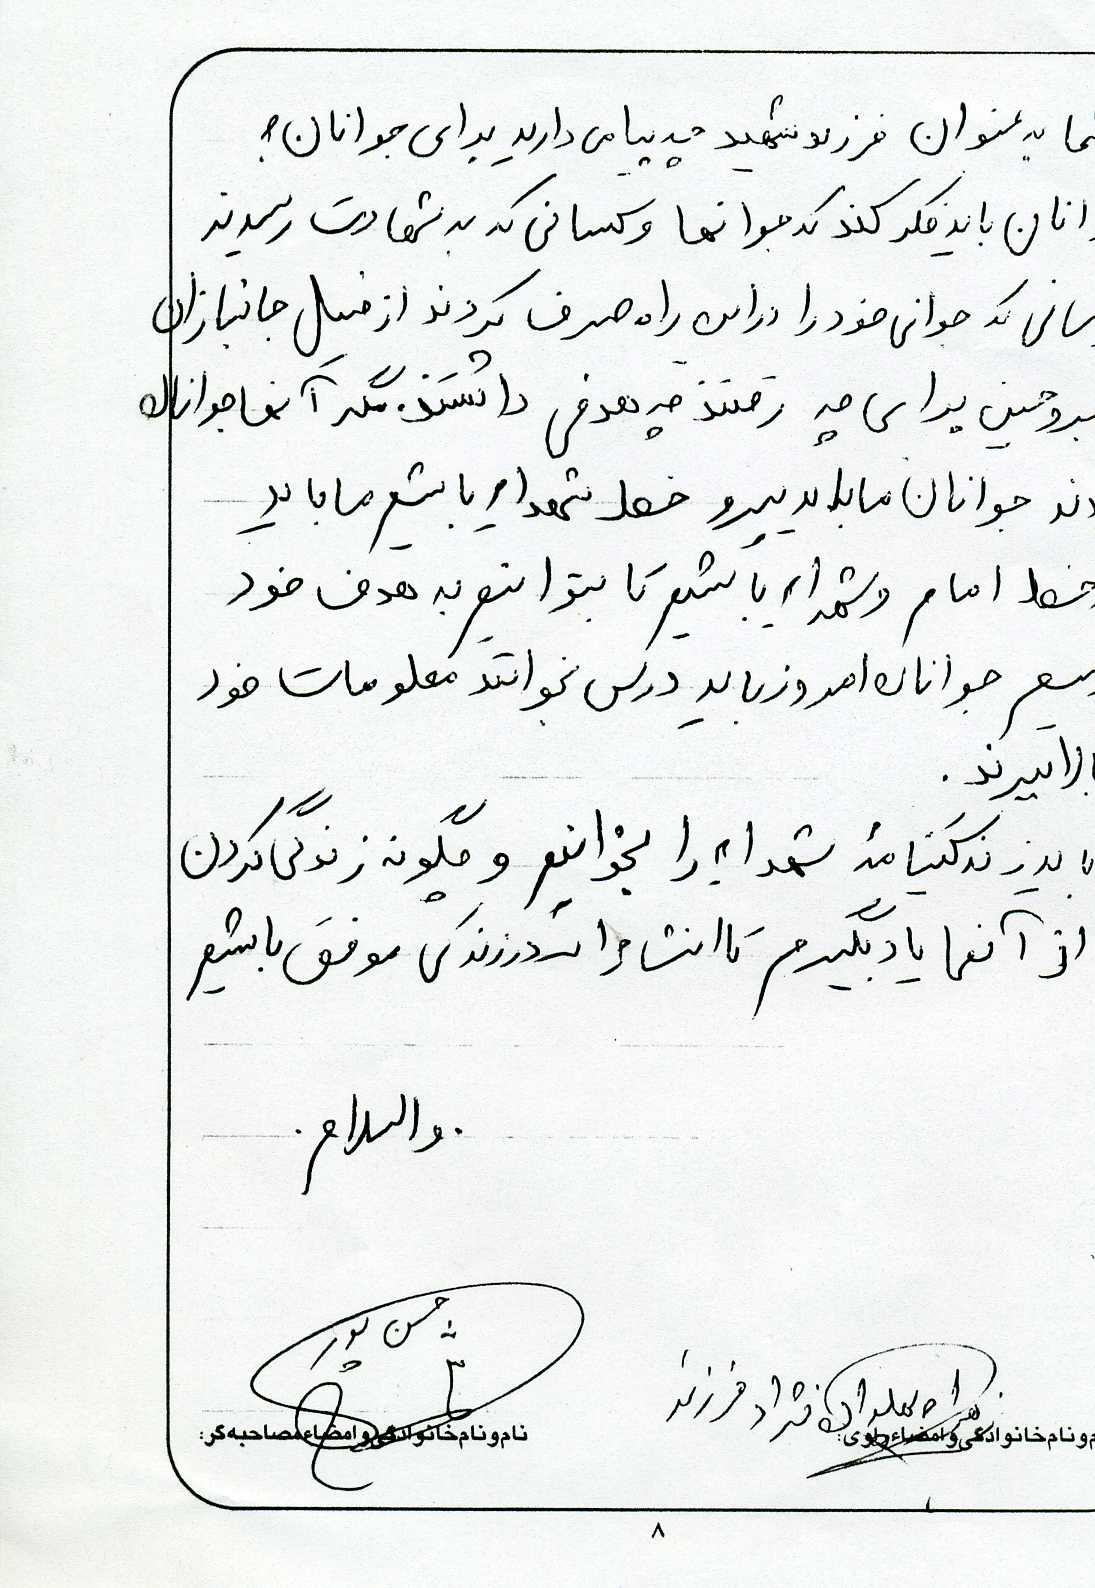 شما به عنوان فرزند شهید چه پیامی دارید برای جوانان؟
جوانان باید فکر کنند که جوانها و کسانی که به شهادت رسیدند
کسانی که جوانی خود را در این راه صرف کردند از قبیل جانبازان
مجروحین برای چه رفتند چه هدفی داشتند. مگر آنها جوانان
بودند جوانان ما باید پیرو خط شهداء باشیم ما باید
خط امام و شهداء باشیم تا بتوانیم به هدف خود
برسیم جوانان امروز باید درس بخوانند معلومات خود
بالا ببرند.
باید زندگینامهٔ شهداء را بخوانیم و چگونه زندگی کردن
از آنها یاد بگیریم تا انشاءالله در زندگی موفق باشیم
. والسلام .
حسن پور
فرزند
نام و نام خانوادگی و امضاء راوی:
نام و نام خانوادگی و امضاء مصاحبه گر:
۸